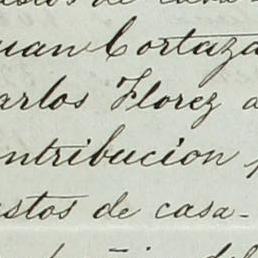 uan Cortaza
arlos Florez a
ntribucion
stos de casa-